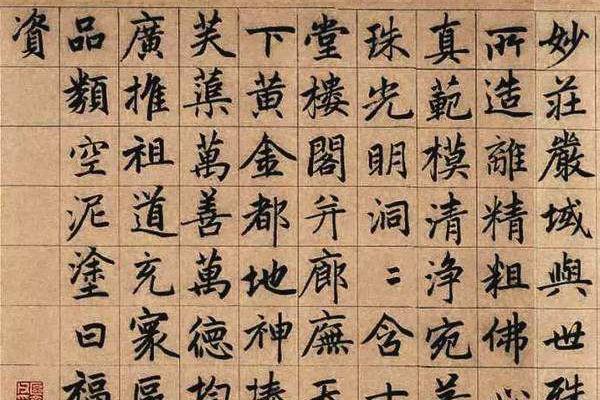 妙莊嚴域與世殊
所造離精粗佛心
真範模清淨宛若
珠光明洞〻含十
堂樓閣并廊廡天
下黃金都地神捧
芙蕖萬善萬德均
廣推祖道充寰區
品類空泥塗曰福
資